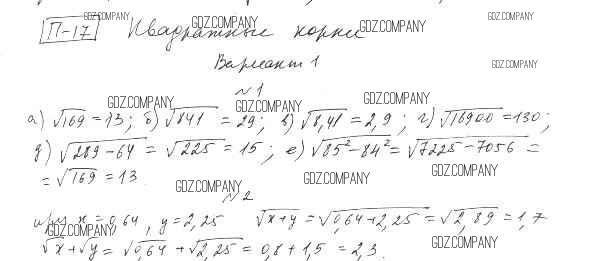 П-17 Квадратные корни
GDZ.COMPANY GDZ.COMPANY GDZ.COMPANY GDZ.COMPANY
Вариант 1
GDZ.COMPANY
№1
GDZ.COMPANY GDZ.COMPANY GDZ.COMPANY
а) √169 = 13; б) √841 = 29; в) √8,41 = 2,9; г) √16900 = 130;
д) √289-64 = √225 = 15; е) √85²-84² = √7225-7056 =
= √169 = 13
GDZ.COMPANY GDZ.COMPANY GDZ.COMPANY
№2
при x = 0,64, y = 2,25 √x+y = √0,64+2,25 = √2,89 = 1,7
GDZ.COMPANY
√x + √y = √0,64 + √2,25 = 0,8 + 1,5 = 2,3
GDZ.COMPANY GDZ.COMPANY